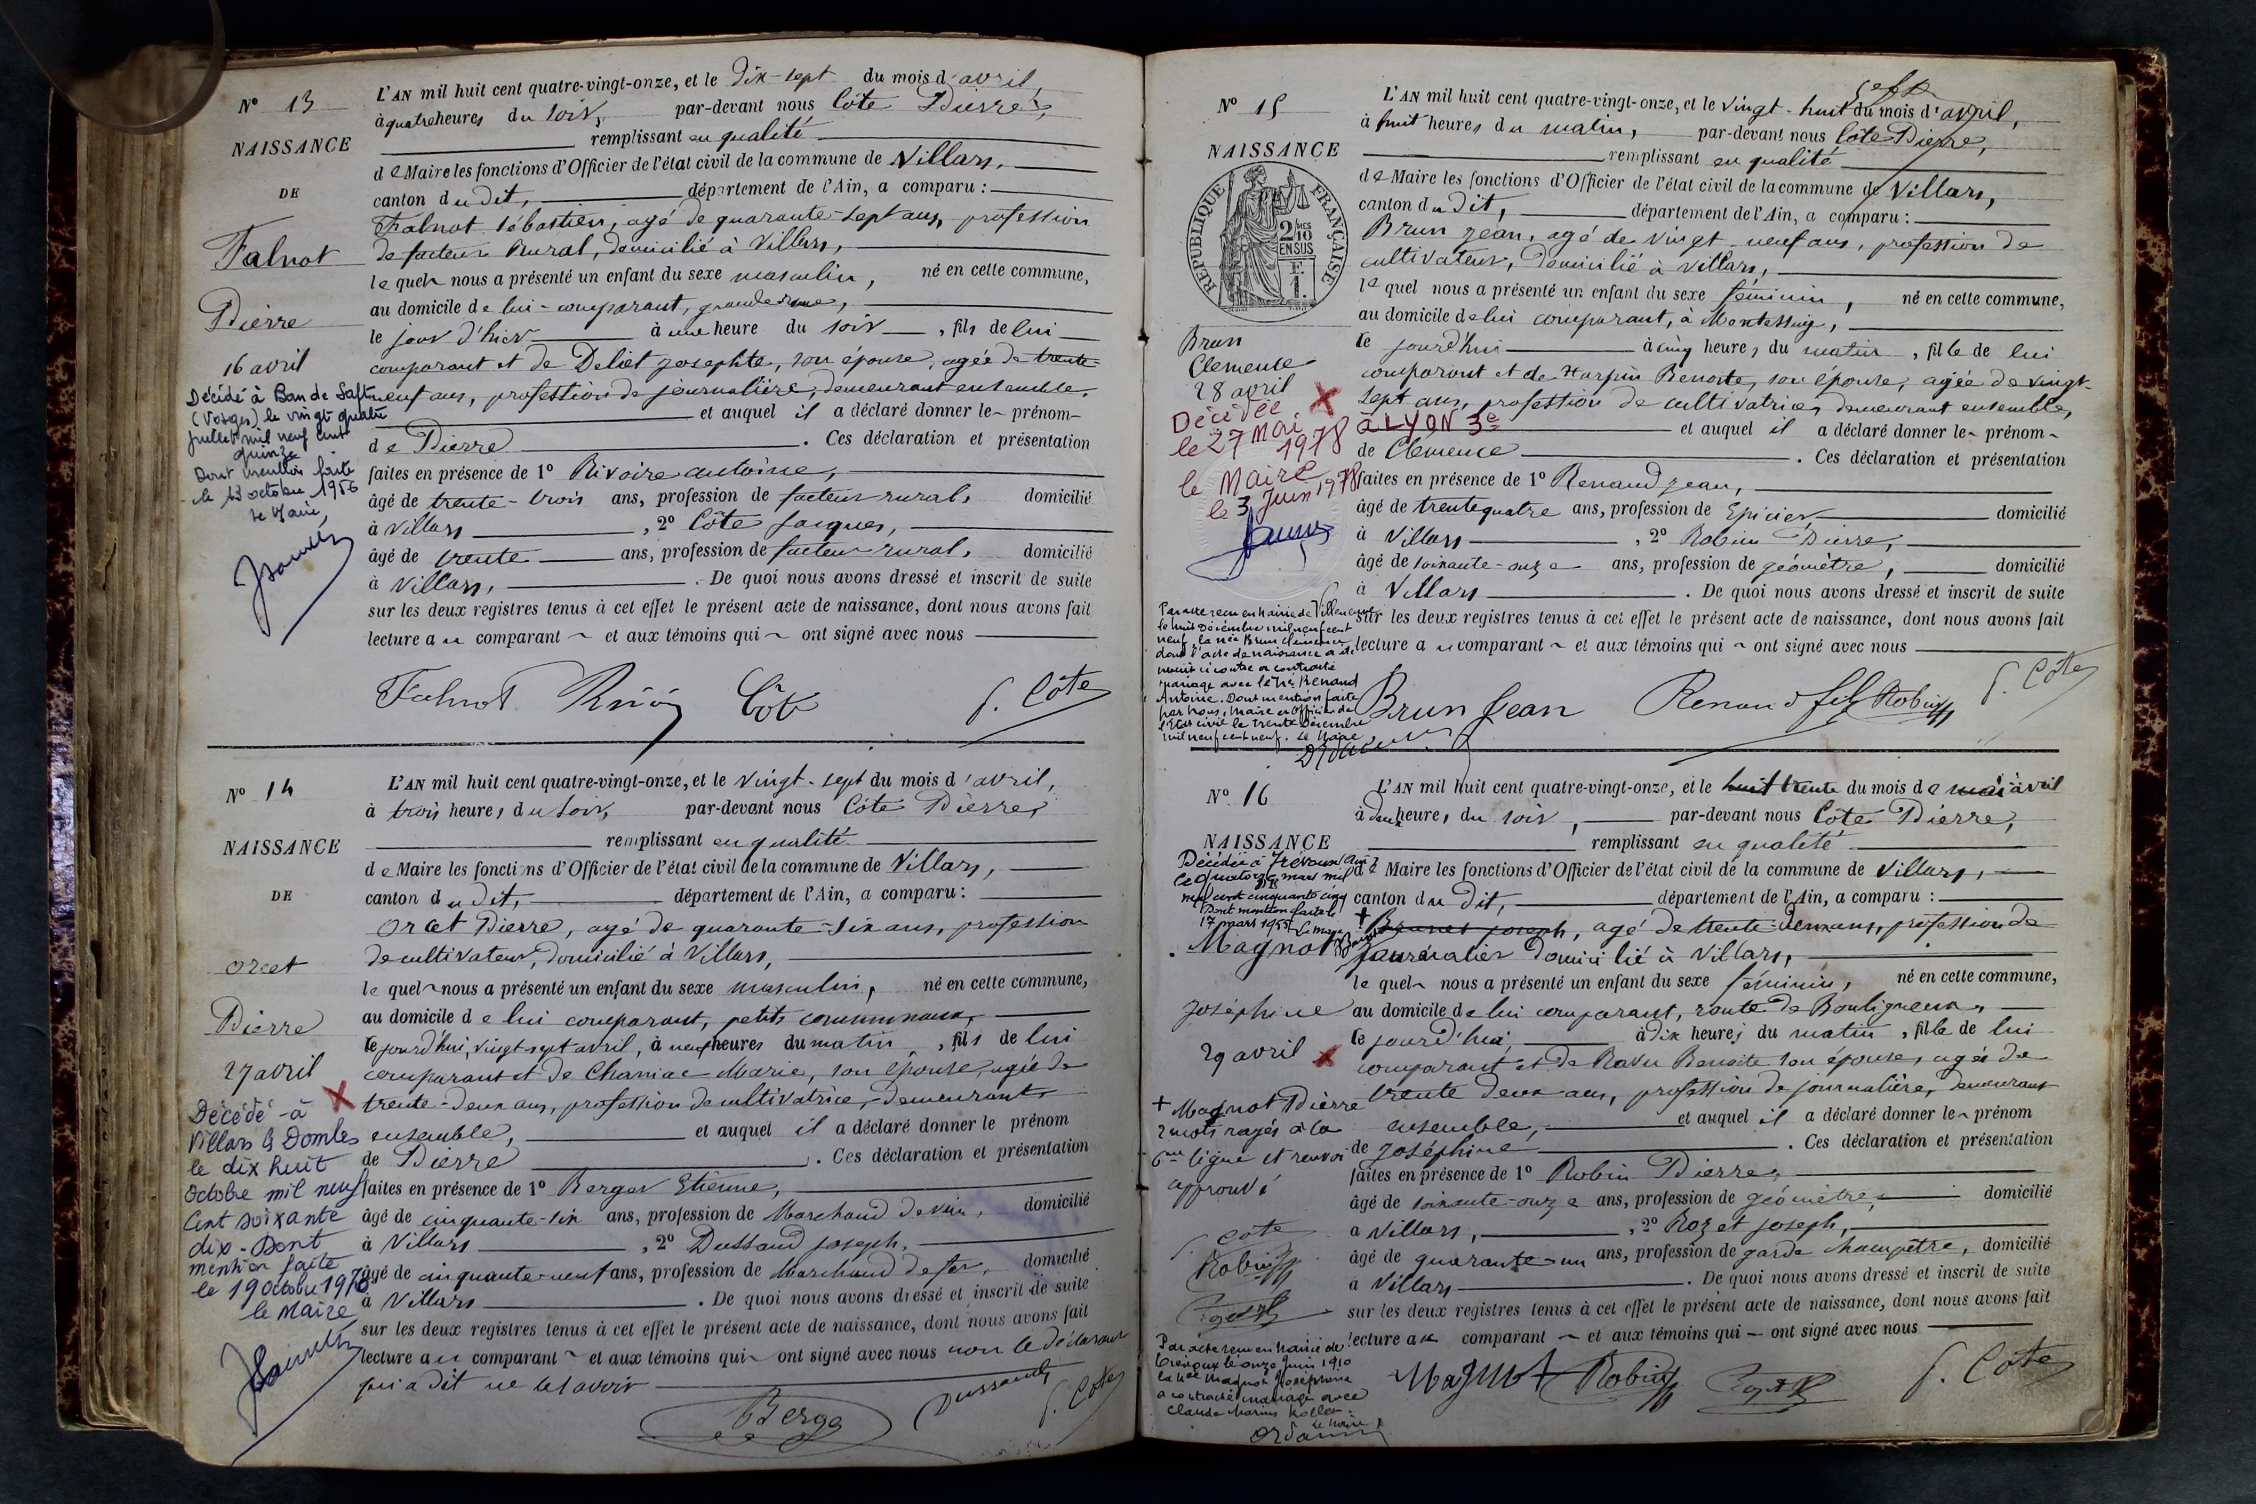 N° 13
NAISSANCE
DE
Falnot
Pierre
16 avril
Décédé à Ban de Sapt
(Vosges) le vingt quatre
juillet mil neuf cent
quinze
Dont mention faite
le 13 octobre 1956
Le Maire,
L'AN mil huit cent quatre-vingt-onze, et le dix-sept du mois d'avril,
à quatre heures du soir, par-devant nous Côte Pierre,
remplissant en qualité
de Maire les fonctions d'Officier de l'état civil de la commune de Villars,
canton dudit, département de l'Ain, a comparu :
Falnot Sébastien, agé de quarante-sept ans, profession
de facteur Rural, domicilié à Villars,
lequel nous a présenté un enfant du sexe masculin, né en cette commune,
au domicile de lui-comparant, grande rue,
le jour d'hier à une heure du soir, fils de lui
comparant et de Deliet Josephte, son épouse, agée de trente-
neuf ans, profession de journalière, demeurant ensemble,
et auquel il a déclaré donner le prénom
de Pierre . Ces déclaration et présentation
faites en présence de 1° Rivoire Antoine,
âgé de trente-trois ans, profession de facteur rural, domicilié
à Villars , 2° Côte Jacques,
âgé de trente ans, profession de facteur rural, domicilié
à Villars, . De quoi nous avons dressé et inscrit de suite
sur les deux registres tenus à cet effet le présent acte de naissance, dont nous avons fait
lecture au comparant et aux témoins qui ont signé avec nous
Falnot Côte P. Côte
N° 14
NAISSANCE
DE
Orcet
Pierre
27 avril
X
Décédé à
Villars les Dombes
le dix huit
Octobre mil neuf
Cent soixante
dix - Dont
mention faite
le 19 octobre 1970
le Maire
L'AN mil huit cent quatre-vingt-onze, et le vingt-sept du mois d'avril,
à trois heures du soir, par-devant nous Côte Pierre,
remplissant en qualité
de Maire les fonctions d'Officier de l'état civil de la commune de Villars,
canton dudit, département de l'Ain, a comparu :
Orcet Pierre, agé de quarante-six ans, profession
de cultivateur, domicilié à Villars,
lequel nous a présenté un enfant du sexe masculin, né en cette commune,
au domicile de lui comparant, petits communaux,
le jourd'hui, vingt sept avril, à neuf heures du matin, fils de lui
comparant et de Charniac Marie, son épouse, agée de
trente-deux ans, profession de cultivatrice, demeurant
ensemble, et auquel il a déclaré donner le prénom
de Pierre . Ces déclaration et présentation
faites en présence de 1° Berger Etienne,
âgé de cinquante-six ans, profession de Marchand de vin, domicilié
à Villars , 2° Dussaud Joseph,
âgé de cinquante-neuf ans, profession de Marchand de fer, domicilié
à Villars . De quoi nous avons dressé et inscrit de suite
sur les deux registres tenus à cet effet le présent acte de naissance, dont nous avons fait
lecture au comparant et aux témoins qui ont signé avec nous non le déclarant
qui a dit ne le savoir
Berger Dussaud P. Côte
N° 15
NAISSANCE
RÉPUBLIQUE FRANÇAISE
2 10MES EN SUS
F.
1.
Brun
Clemence
28 avril
X
Décédée
à LYON 3e
le 27 Mai 1978
le Maire
le 3 Juin 1978
Par acte reçu en mairie de Villeneuve
le huit Décembre mil neuf cent
neuf, la née Brun Clemence
dont l'acte de naissance a été
inscrit ci contre a contracté
mariage avec le né Renand
Antoine. Dont mention faite
par nous, Maire et Officier de
l'Etat civil le trente Décembre
mil neuf cent neuf. Le Maire
sept
L'AN mil huit cent quatre-vingt-onze, et le vingt-huit du mois d'avril,
à huit heures du matin, par-devant nous Côte Pierre,
remplissant en qualité
de Maire les fonctions d'Officier de l'état civil de la commune de Villars,
canton dudit, département de l'Ain, a comparu :
Brun Jean, agé de vingt-neuf ans, profession de
cultivateur, domicilié à Villars,
lequel nous a présenté un enfant du sexe féminin, né en cette commune,
au domicile de lui comparant, à Montessuy,
le jourd'hui à cinq heures du matin, fille de lui
comparant et de Harpin Benoite, son épouse, agée de vingt-
sept ans, profession de cultivatrice, demeurant ensemble,
et auquel il a déclaré donner le prénom
de Clémence . Ces déclaration et présentation
faites en présence de 1° Renaud Jean,
âgé de trente quatre ans, profession de Epicier domicilié
à Villars , 2° Robin Pierre,
âgé de soixante-onze ans, profession de géomètre, domicilié
à Villars . De quoi nous avons dressé et inscrit de suite
sur les deux registres tenus à cet effet le présent acte de naissance, dont nous avons fait
lecture au comparant et aux témoins qui ont signé avec nous
Brun Jean Renaud fils Robin P. Côte
N° 16
NAISSANCE
Décédée à Trévoux (Ain)
le quatorze mars mil
neuf cent cinquante cinq
Dont mention faite le
17 mars 1955 Le Maire
Magnot
Joséphine
29 avril
X
+ Magnot Pierre
2 mots rayés à la
6me ligne et renvoi
approuvé
P. Côte
Robin
Rozet
Par acte reçu en mairie de
Trévoux le onze Juin 1910
la née Magnot Joséphine
a contracté mariage avec
Claude Marius
Le Maire
L'AN mil huit cent quatre-vingt-onze, et le huit trente du mois de mai avril
à deux heures du soir, par-devant nous Côte Pierre,
remplissant en qualité
de Maire les fonctions d'Officier de l'état civil de la commune de Villars,
canton dudit, département de l'Ain, a comparu :
+ Joseph, agé de trente-deux ans, profession de
journalier domicilié à Villars,
lequel nous a présenté un enfant du sexe féminin, né en cette commune,
au domicile de lui comparant, route de Bouligneux,
le jourd'hui, à dix heures du matin, fille de lui
comparant et de Ravu Benoite son épouse, agée de
trente deux ans, profession de journalière, demeurant
ensemble, et auquel il a déclaré donner le prénom
de Joséphine . Ces déclaration et présentation
faites en présence de 1° Robin Pierre,
âgé de soixante-onze ans, profession de géomètre, domicilié
à Villars, , 2° Rozet Joseph,
âgé de quarante-un ans, profession de garde champêtre, domicilié
à Villars . De quoi nous avons dressé et inscrit de suite
sur les deux registres tenus à cet effet le présent acte de naissance, dont nous avons fait
lecture au comparant et aux témoins qui ont signé avec nous
Magnot Robin Rozet P. Côte